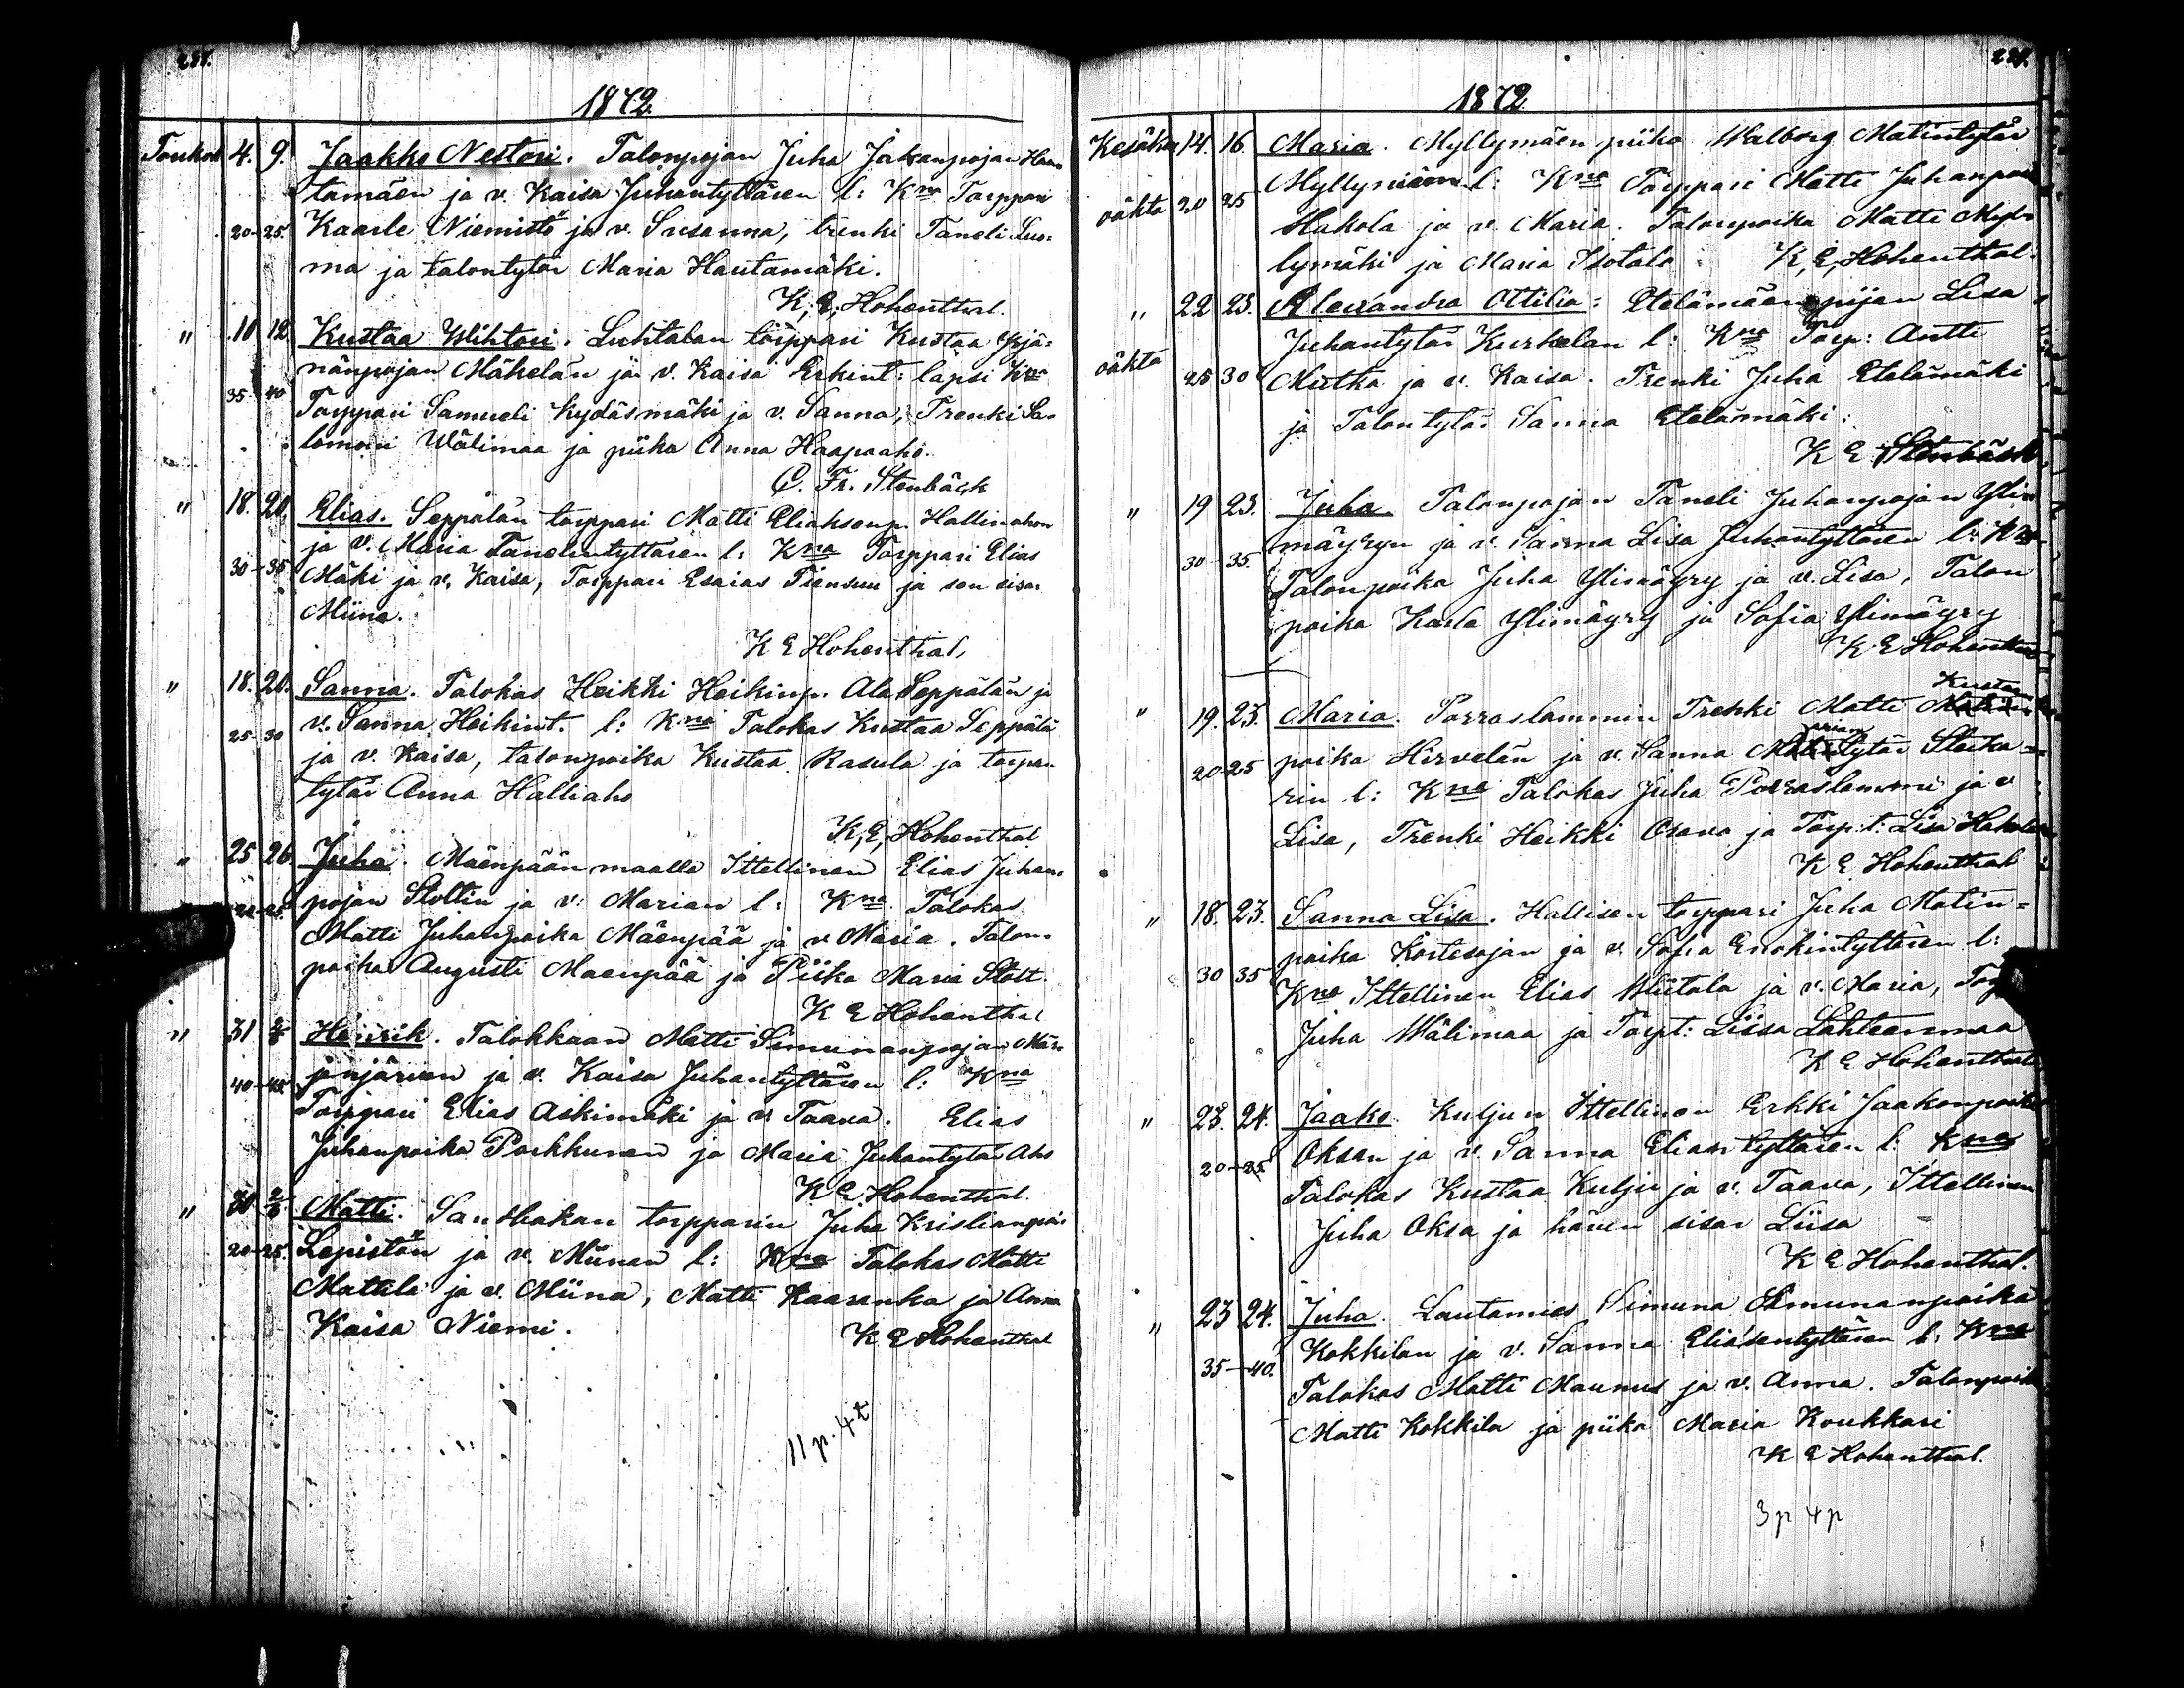 1872
Toukok 4. 9. Jaakko Nestori. Talonpojan Juha Jakanpojan Hau-
tamäen ja v. Kaisa Juhantyttären l: Kna Torppari
20-25. Kaarle Niemistö ja v. Susanna, trenki Taneli Luo-
ma ja talontytär Maria Hautamäki.
K. E. Hohenthal.
" 10 12 Kustaa Wihtori. Luhtalan torppari Kustaa Yrjä-
nänpojan Mäkelän ja v. Kaisa Erkint: lapsi Kna
35-40 Torppari Samueli Kydäsmäki ja v. Sanna, Trenki Sa-
lomoni Wälimaa ja piika Anna Haapaaho.
C. Fr. Stenbäck
" 18. 20. Elias. Seppälän torppari Matti Eliaksenp. Hallinahon
ja v. Maria Tanelintyttären l: Kna Torppari Elias
30-35 Mäki ja v. Kaisa, Torppari Esaias Tiensuu ja sen sisar
Miina.
K E Hohenthal,
" 18. 20. Sanna. Talokas Heikki Heikinp. Ala Seppälän ja
v. Sanna Heikint. l: Kna Talokas Kustaa Seppälä
25-30 ja v. Kaisa, talonpoika Kustaa Rasula ja torpan
tytär Anna Halliaho
K. E. Hohenthal
" 25 26 Juha. Mäenpään maalla Ittellinen Elias Juhan-
20-25 pojan Stoltin ja v: Marian l: Kna. Talokas
Matti Juhanpoika Mäenpää ja v Maria. Talon-
poika Augusti Maenpää ja Piika Maria Stolt.
K E Hohenthal
" 31 2/6 Henrik. Talokkaan Matti Simunanpojan Mär-
40-45 jänjärven ja v. Kaisa Juhantyttären l: Kna
Torppari Elias Askimäki ja v Taava. Elias
Juhanpoika Porkkunen ja Maria Juhantytär Aho
K E Hohenthal.
" 31 2/6 Matti. Santhakan torpparin Juha Kristianpoi-
20-25. Lepistön ja v. Miinan l: Kna Talokas Matti
Mattila ja v. Miina, Matti Kaaranka ja Anna
Kaisa Niemi.
K E Hohenthal
11 p. 4 t
1872
Kesäkuu 14. 16. Maria. Myllymäen piika Walborg Matintytär
Myllymäen l: Kna Torppari Matti Juhanpoi
oähta 20 25 Hakola ja v. Maria. Talonpoika Matti Myl-
lymäki ja Maria Isotalo K. E. Hohenthal.
" 22 23. Alexandra Ottilia: Etelämäen pijan Lisa
Juhantytär Kurkelan l: Kna Torp: Antti
oähta 25 30 Mutka ja v. Kaisa. Trenki Juha Etelämäki
ja Talontytär Sanna Etelämäki:
K E Stenbäck
" 19 23. Juha. Talonpojan Taneli Juhanpojan Yli-
mäyryn ja v. Sanna Lisa Juhantyttären l: Kna
30-35. Talonpoika Juha Ylimäyry ja v. Lisa, Talon
poika Kaale Ylimäyry ja Sofia Ylimäyry
K. E Hohenthal
Kustaan
" 19. 23. Maria. Porraslammin Trenki Matti
poika Hirvelän ja v. Sanna
20-25 rin l: Kna Talokas Juha Porraslammi ja v
Lisa, Trenki Heikki Osara ja Torp. t: Lisa Hakola
K E Hohenthal
" 18. 23. Sanna Lisa. Hallisen torppari Juha Matin-
poika Kortesojan ja v. Sofia Enokintyttären l:
30 35 Kna Ittellinen Elias Wiitala ja v. Maria,
Juha Wälimaa ja Torpt: Liisa Lähteenmaa
K E Hohenthal
" 23. 24. Jaako. Kuljun Ittellinen Erkki Jaakonpoika
Oksan ja v. Sanna Eliantyttären l: Kna
20-25 Talokas Kustaa Kulju ja v. Taava, Ittellinen
Juha Oksa ja hänen sisar Liisa
K E Hohenthal.
" 23 24. Juha. Lautamies Simuna Simunanpoika
Kokkilan ja v. Sanna Eliasentyttären l: Kna
35-40. Talokas Matti Maunus ja v. Anna. Talonpoika
Matti Kokkila ja piika Maria Koukkari
K E Hohenthal.
3 p 4 p